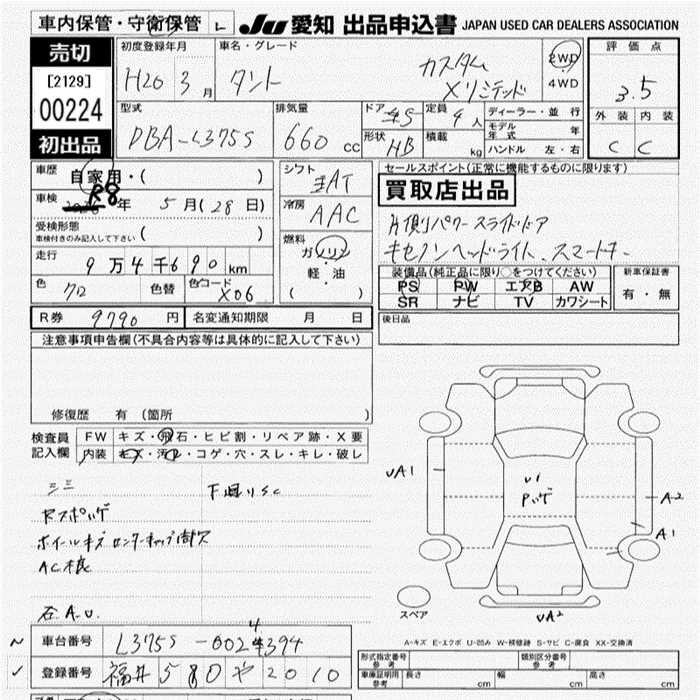 車内保管・守衛保管 L
JU 愛知 出品申込書 JAPAN USED CAR DEALERS ASSOCIATION
売切
[2129]
00224
初出品
初度登録年月
H20 3月
車名・グレード
タント
カスタム
Xリミテッド
2WD
・
4WD
評価点
3.5
外装 内装
C C
型式
DBA-L375S
排気量
660 cc
ドア
形状
HB
定員
4人
積載
kg
ディーラー・並行
モデル年式 年
ハンドル 左・右
車歴 自家用・( )
車検 R8年 5月(28日)
受検形態
車検付きのみ記入して下さい ( )
走行
9万4千690km
色
クロ
色替
色コード
X06
シフト
AT
冷房
AAC
燃料
ガソリン
・
軽・油
( )
セールスポイント(正常に機能するものに限ります)
買取店出品
片側パワースライドドア
キセノンヘッドライト、スマートキー
装備品(純正品に限り○をつけてください)
PS PW エアB AW
SR ナビ TV カワシート
新車保証書
有・無
R券 9790円 名変通知期限 月 日
後日品
注意事項申告欄(不具合内容等は具体的に記入して下さい)
修復歴 有 (箇所 )
検査員
記入欄
FW キズ・飛石・ヒビ割・リペア跡・X要
内装 キズ・汚れ・コゲ・穴・スレ・キレ・破レ
下廻りSC
ホイールキズ センターキャップ
A.U.
UA1
U1
A2
A1
UA2
スペア
A-キズ E-エクボ U-凹み W-補修跡 S-サビ C-腐食 XX-交換済
車台番号 L375S-0024394
登録番号 福井 580 や 2010
型式指定番号
参考
類別区分番号
参考
車庫証明用
参考
長さ cm 幅 cm 高さ cm